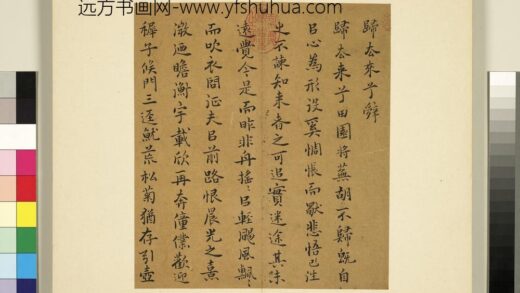 远方书画网-www.yfshuhua.com
歸去來兮辭
歸去來兮田園將蕪胡不歸既自
以心為形役奚惆悵而獨悲悟已往
之不諫知來者之可追實迷途其未
遠覺今是而昨非舟搖〻以輕颺風飄〻
而吹衣問征夫以前路恨晨光之熹
微迺瞻衡宇載欣再奔僮僕歡迎
稚子候門三逕就荒松菊猶存引壺